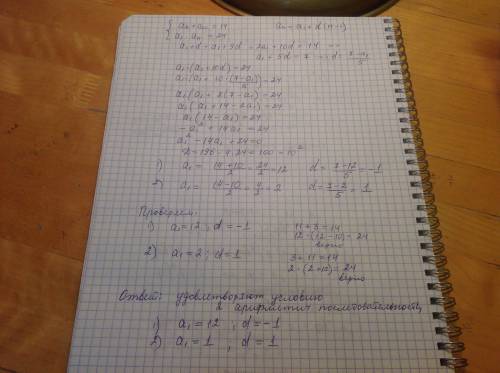 { a₂ + a₁₀ = 14    aₙ = a₁ + d(n-1)
a₁ · a₁₁ = 24
a₁ + d + a₁ + 9d = 2a₁ + 10d = 14 =>
a₁ + 5d = 7 => d = (7-a₁)/5
a₁ · (a₁ + 10d) = 24
a₁ · (a₁ + 10 · (7-a₁)/5) = 24
a₁(a₁ + 2(7-a₁) = 24
a₁(a₁ + 14 - 2a₁) = 24
a₁(14 - a₁) = 24
-a₁² + 14a₁ = 24
a₁² - 14a₁ + 24 = 0
D = 196 - 4·24 = 100 = 10²
1) a₁ = (14+10)/2 = 24/2 = 12    d = (7-12)/5 = -1
2) a₁ = (14-10)/2 = 4/2 = 2    d = (7-2)/5 = 1
Проверяем:
1) a₁ = 12 ; d = -1    11 + 3 = 14
12 · (12-10) = 24
верно
2) a₁ = 2 ; d = 1    3 + 11 = 14
2 · (2+10) = 24
верно
Ответ: удовлетворяют условию
2 арифметич последовательности,
1) a₁ = 12 ; d = -1
2) a₁ = 1 , d = 1